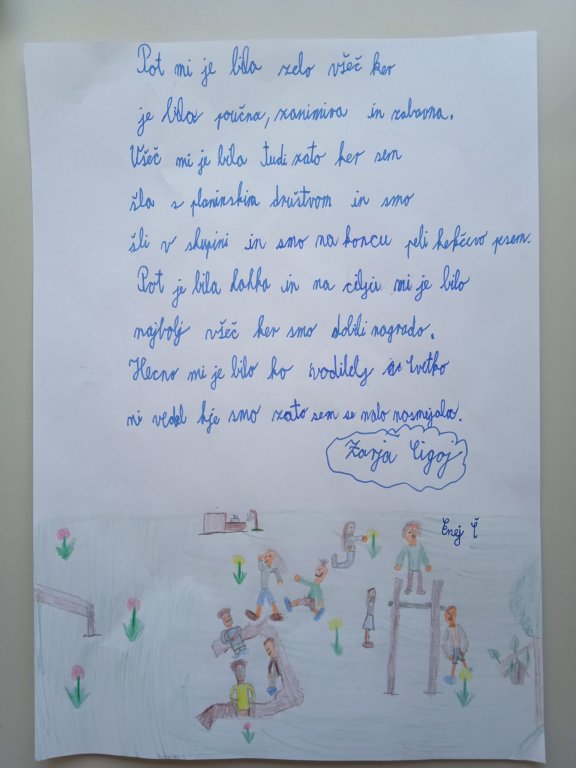 Pot mi je bila zelo všeč ker
je bila poučna, zanimiva in zabavna.
Všeč mi je bila tudi zato ker sem
šla s planinskim društvom in smo
šli v skupini in smo na koncu peli kekčevo pesem.
Pot je bila lahka in na cilju mi je bilo
najbolj všeč ker smo dobili nagrado.
Hecno mi je bilo ko voditelj Cvetko
ni vedel kje smo zato sem se malo nasmejala.
Zarja Cigoj
Enej Č